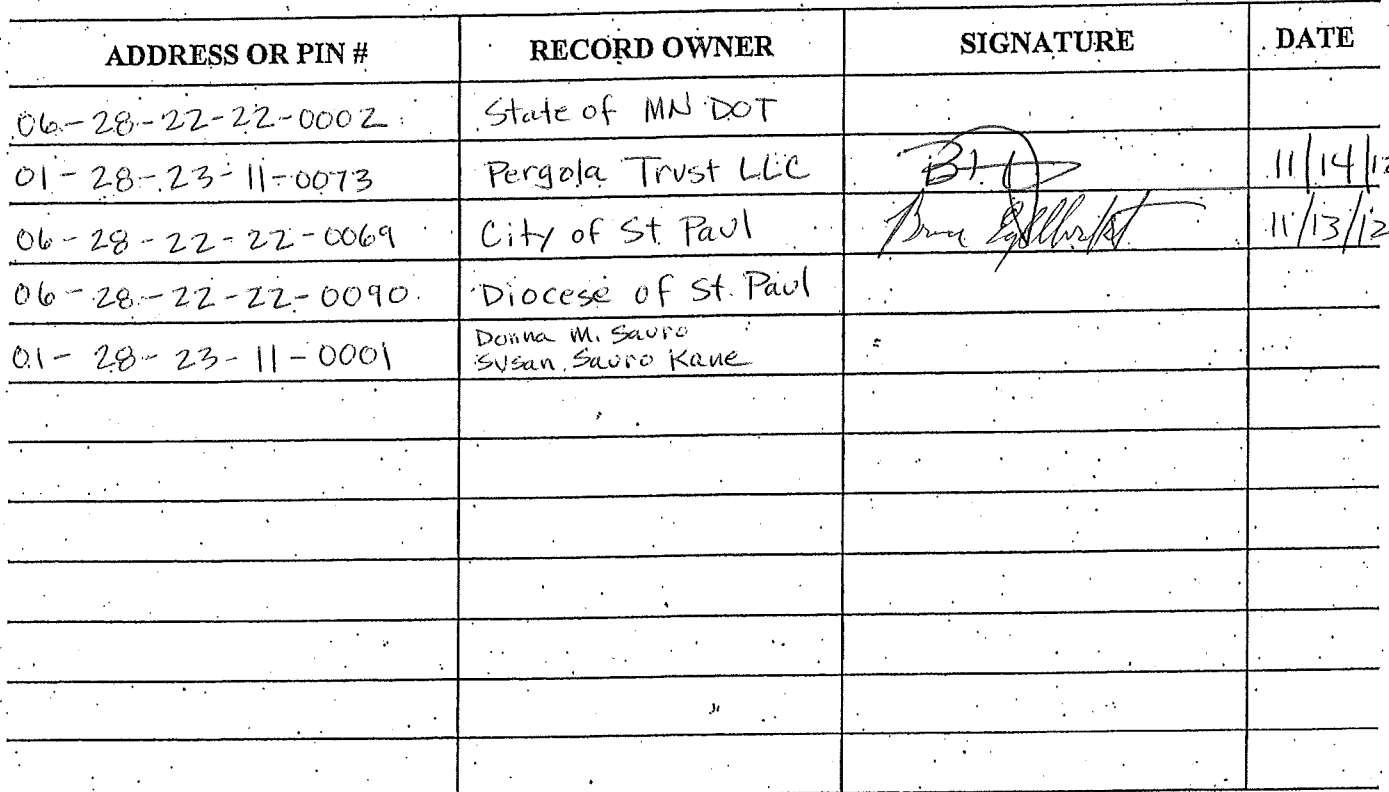 ADDRESS OR PIN # RECORD OWNER SIGNATURE DATE
06-28-22-22-0002 State of MN DOT
01-28-23-11-0073 Pergola Trust LLC 11/14/12
06-28-22-22-0069 City of St Paul 11/13/12
06-28-22-22-0090 Diocese of St. Paul
Donna M. Sauro
01-28-23-11-0001 Susan Sauro Kane